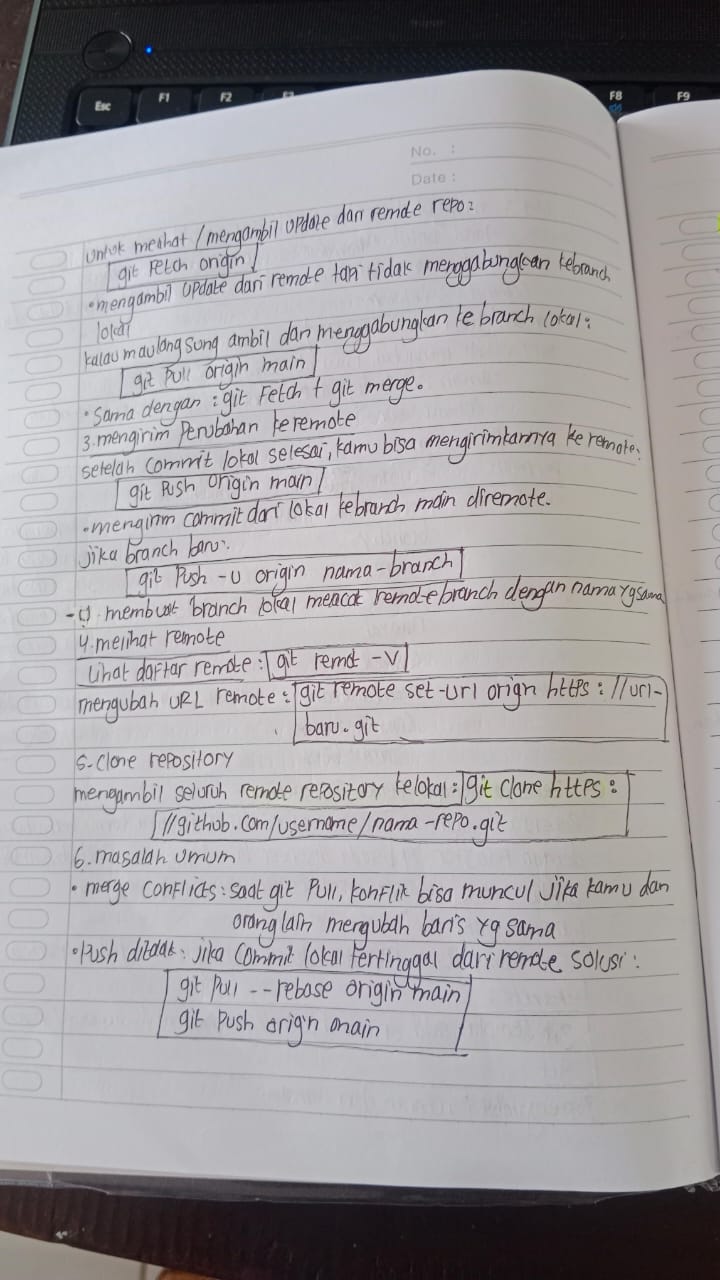 Esc F1 F2 F8 F9
No. :
Date :
untuk melihat / mengambil update dari remote repo:
git Fetch origin
• mengambil update dari remote tapi tidak menggabungkan kebranch
lokal
kalau mau langsung ambil dan menggabungkan ke branch lokal:
git Pull origin main
• Sama dengan : git Fetch + git merge.
3. mengirim Perubahan keremote
setelah Commit lokal selesai, kamu bisa mengirimkannya ke remote:
git Push origin main
• mengirim commit dari lokal kebranch main diremote.
jika branch baru:
git Push -u origin nama-branch
membuat branch lokal melacak remote branch dengan nama yg sama
4. melihat remote
Lihat daftar remote : git remot -v
mengubah URL remote : git remote set-url orign https : //url-
baru.git
5. Clone repository
mengambil seluruh remote repository kelokal : git Clone https :
//github.com/username/nama-repo.git
6. masalah umum
• merge Conflicts : saat git Pull, konflik bisa muncul jika kamu dan
orang lain mengubah baris yg sama
• Push ditolak : jika Commit lokal tertinggal dari remote solusi :
git Pull --rebase origin main
git Push origin main